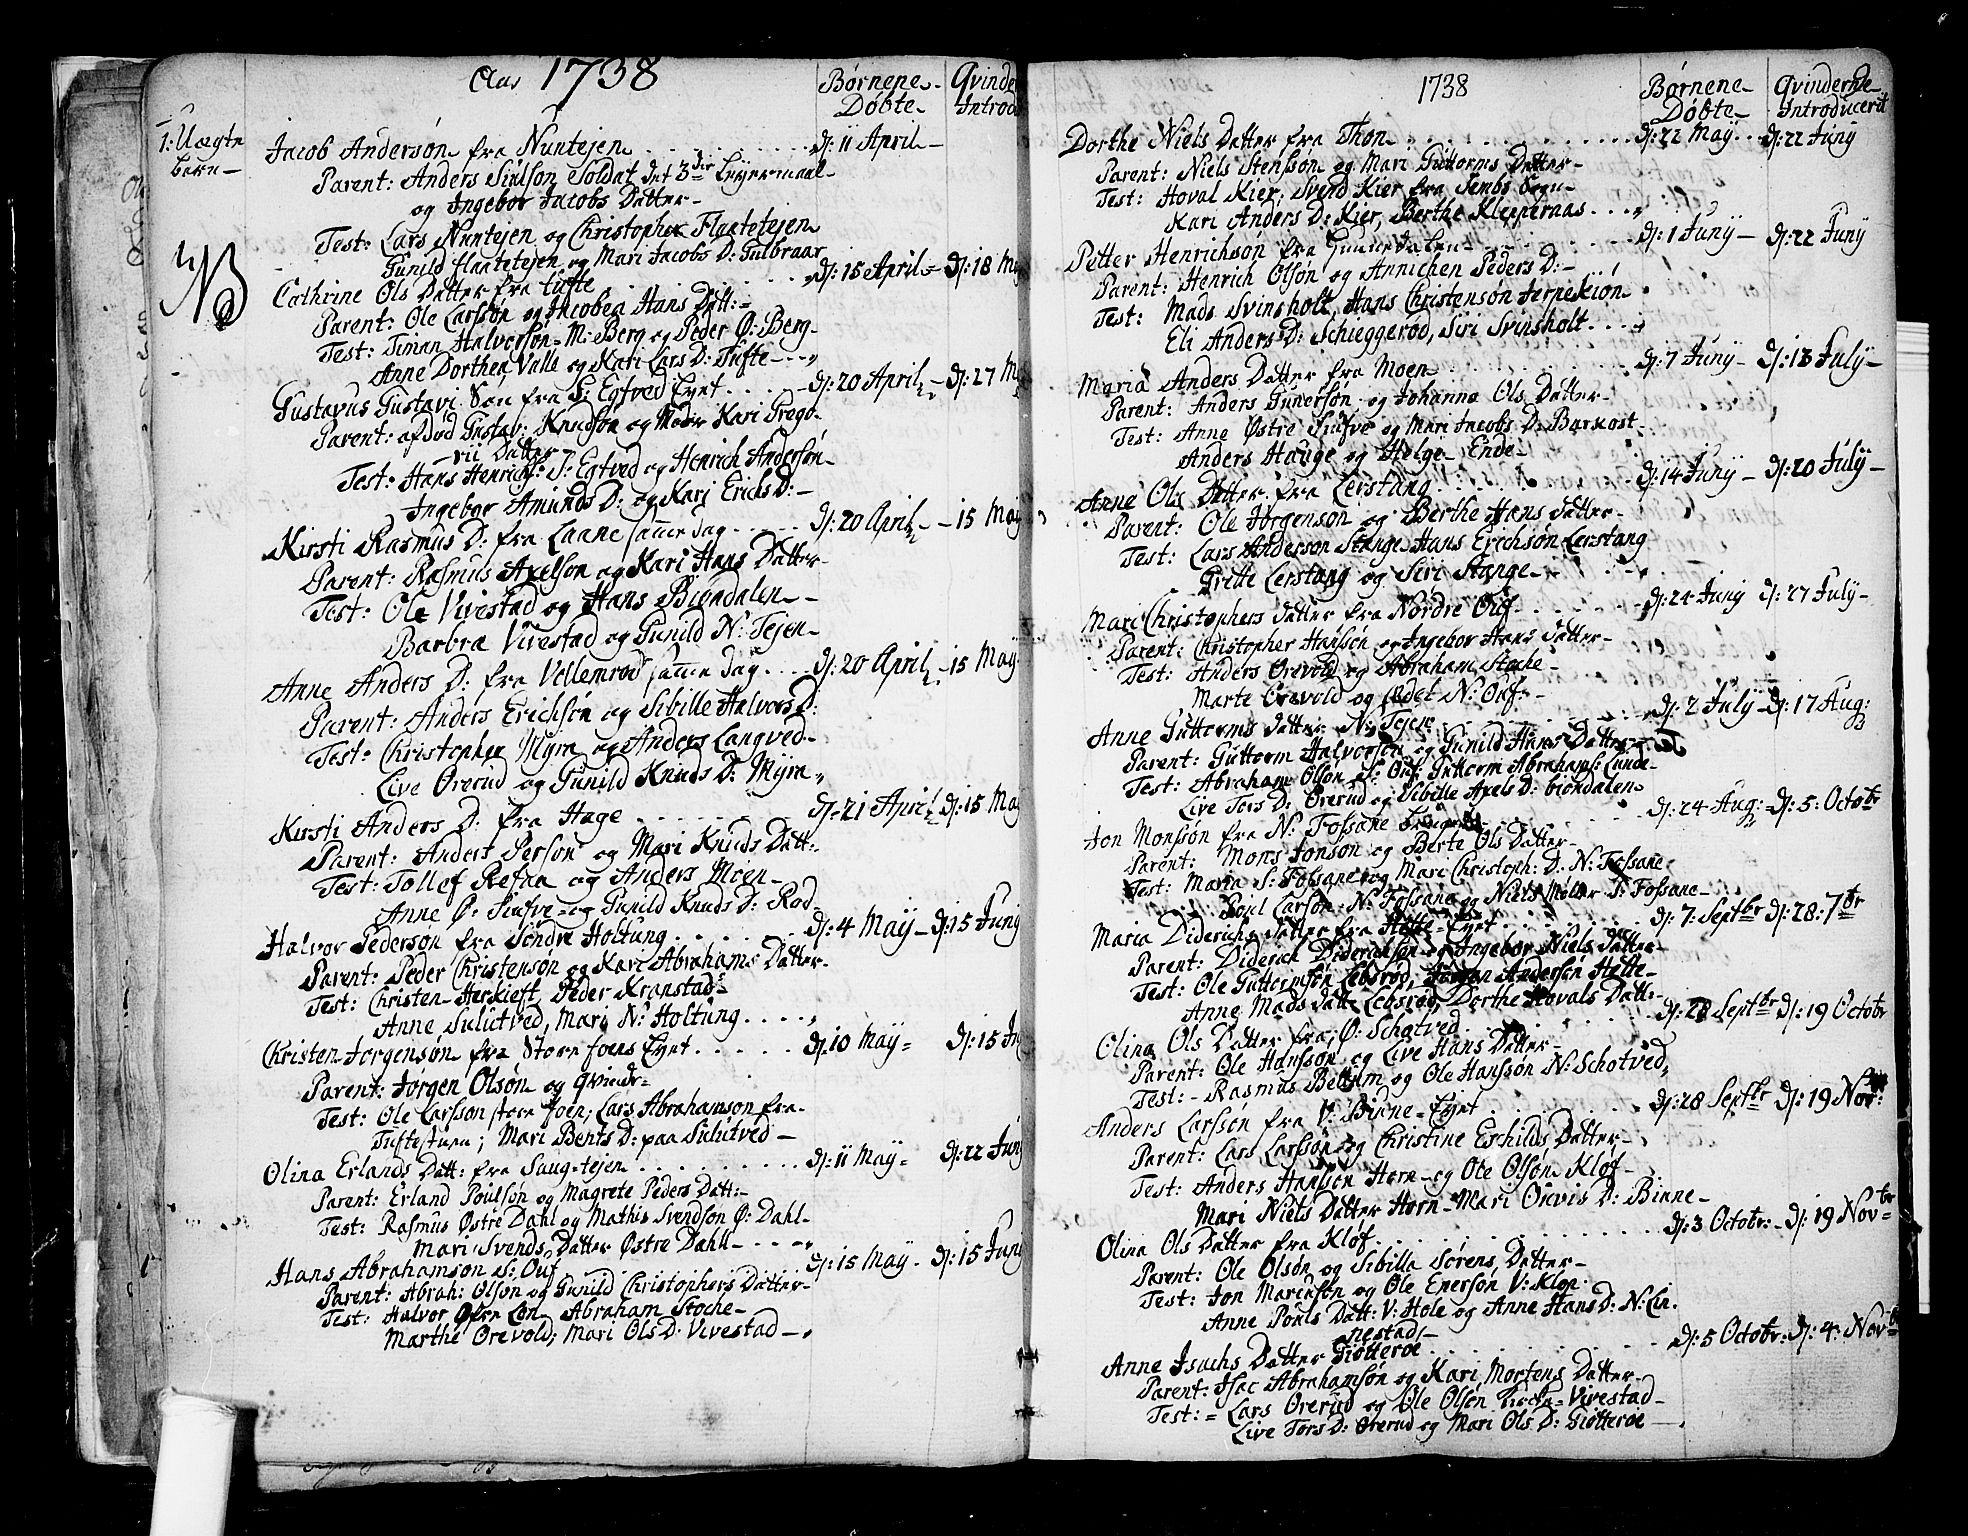 Aar 1738
Børnene Døbte
Qvinde Introd
1: Uægte
børn
Jacob Andersøn fra Nuntejen d: 11 April
Parent: Anders Siulsøn Soldat det 3die Leyermaal
og Ingebor Jacobs Datter
Test: Lars Nuntejen og Christopher Flaatetejen
Gunild flaatetejen og Mari Jacobs D: Gulbraar
NB
Cathrine Ols Datter fra tufte d: 15 April d: 18 M
Parent: Ole Larssøn og Jacobea Hans Datt:
Test: Timan Halvorsøn M: Berg og Peder Ø: Berg
Anne Dorthea Valle og Kari Lars D: Tufte
Gustavus Gustavi Søn fra S: Egtved Eyet d: 20 April d: 27 M
Parent: afdød Gustav: Knudsøn og Moder Kari Grego-
rii Datter
Test: Hans Henrichs: S: Egtved og Henrich Andersøn
Ingebor Amunds D: og Kari Erichs D:
Kirsti Rasmus D: fra Laane samme dag d: 20 April 15 May
Parent: Rasmus Axelsøn og Kari Hans Datter
Test: Ole Vivestad og Hans Biøndalen
Barbra Vivestad og Gunild N: Tejen
Anne Anders D: fra Vellemrød samme dag d: 20 April 15 May
Parent: Anders Erichsøn og Sibille Halvors D:
Test: Christopher Myra og Anders Langved
Live Orerud og Gunild Knuds D: Myra
Kirsti Anders D: fra Hage d: 21 April d: 15 Ma
Parent: Anders Persøn og Mari Knuds Datt:
Test: Tollef Refna og Anders Moen
Anne Ø: Siufve og Gunild Knuds D: Rød
Halvor Pedersøn fra Søndre Holtung d: 4 May d: 15 Juny
Parent: Peder Christensøn og Kari Abrahams Datter
Test: Christen Herkieft, Peder Kranstad
Anne Sulutved, Mari N: Holtung
Christen Jørgensøn fra Store Joens Eyet d: 10 May d: 15 Ju
Parent: Jørgen Olsøn og qvinde
Test: Ole Larssøn store Joen; Lars Abrahamsøn fra
Tuftestuen; Mari Bents D: paa Sulutved
Olina Erlands Datt: fra Saug-tejen d: 11 May d: 22 Juny
Parent: Erland Poulsøn og Magrete Peders Datt:
Test: Rasmus Østre Dahl og Mathis Svendsøn Ø: Dahl
Mari Svends Datter Østre Dahl
Hans Abrahamsøn S: Ouf d: 15 May d: 15 Juny
Parent: Abrah: Olsøn og Gunild Christophers Datter
Test: Halvor Øfre Løn Abraham Stoche
Marthe Orevold; Mari Ols D: Vivestad
1738
Børnene Døbte
Qvinderne Introducerit
Dorthe Niels Datter fra Thon d: 22 May d: 22 Juny
Parent: Niels Stenssøn og Mari Guttorms Datter
Test: Hoval Kier; Svend Kier fra Sembs Sogn
Kari Anders D: Kier, Berthe Kleppernas
Petter Henrichsøn fra Gunnedalen d: 1 Juny d: 22 Juny
Parent: Henrich Olsøn og Annichen Peders D:
Test: Mads Svinsholt, Hans Christensøn Jerpekiøn
Eli Anders D: Schieggerød, Siri Svinsholt
Maria Anders Datter fra Moen d: 7 Juny d: 13 July
Parent: Anders Gunersøn og Johanna Ols Datter
Test: Anne Østre Siufve og Mari Jacobs D: Barkost
Anders Hauge og Helge Ende
Anne Ols Datter fra Lerstang d: 14 Juny d: 20 July
Parent: Ole Jørgensøn og Berthe Hans Datter
Test: Lars Andersøn Stange Hans Erichsøn Lerstang
Grette Lerstang og Siri Stange
Mari Christophers datter fra Nordre Ouf d: 24 Juny d: 27 July
Parent: Christopher Hanssøn og Ingebor Hans Datter
Test: Anders Orevold og Abraham Stoche
Marte Orevold og Jedet N: Ouf
Anne Guttorms datter N: Tejen d: 2 July d: 17 Aug:
Parent: Guttorm Halvorsøn og Gunild Hans Datter
Test: Abraham Olsøn S: Ouf Guttorm Abrahams: Lunde
Live Tors D: Orerud og Sibille Axels D: biøndalen
Jon Monssøn fra N: Fossane d: 24 Aug: d: 5: Octobr
Parent: Mons Jonsøn og Berte Ols Datter
Test: Maria S: Fossane og Mari Christoph: D: N: Fossane
Poul Larsøn N: Fossane og Niels Møller S: Fossane
Maria Diderichs datter fra Helte Eyet d: 7: Septbr d: 28: 7br
Parent: Diderich Diderichsøn og Ingebor Niels datter
Test: Ole Guttormsøn Lebsrød, Andersøn Helte
Anne Mads datt: Lebsrød, Dorthe Hovals Datt:
Olina Ols Datter fra Ø: Schotved d: 28 Septbr d: 19 Octobr
Parent: Ole Hanssøn og Live Hans Datter
Test: Rasmus og Ole Hanssøn N: Schotved
Anders Larssøn fra V: Binne Eyet d: 28 Septbr d: 19 Nov:
Parent: Lars Larssøn og Christine Eschilds Datter
Test: Anders Hanssøn Horn og Ole Olsøn Kløf
Mari Niels Datter Horn Mari Onvis D: Binne
Olina Ols Datter fra Kløf d: 3 Octobr: d: 19 Novbr
Parent: Ole Olsøn og Sibilla Sørens Datter
Test: Jon Marinsøn og Ole Enersøn V: Klop
Anne Pouls Datt: V: Hole og Anne Hans D: N: Lin-
nestad
Anne Isachs Datter Giøtterøe d: 5 Octobr: d: 4: Novb
Parent: Isac Abrahamsøn og Kari Mortens Datter
Test: Lars Orerud og Ole Olsøn Vivestad
Live Tors D: Orerud og Mari Ols D: Giøtterøe